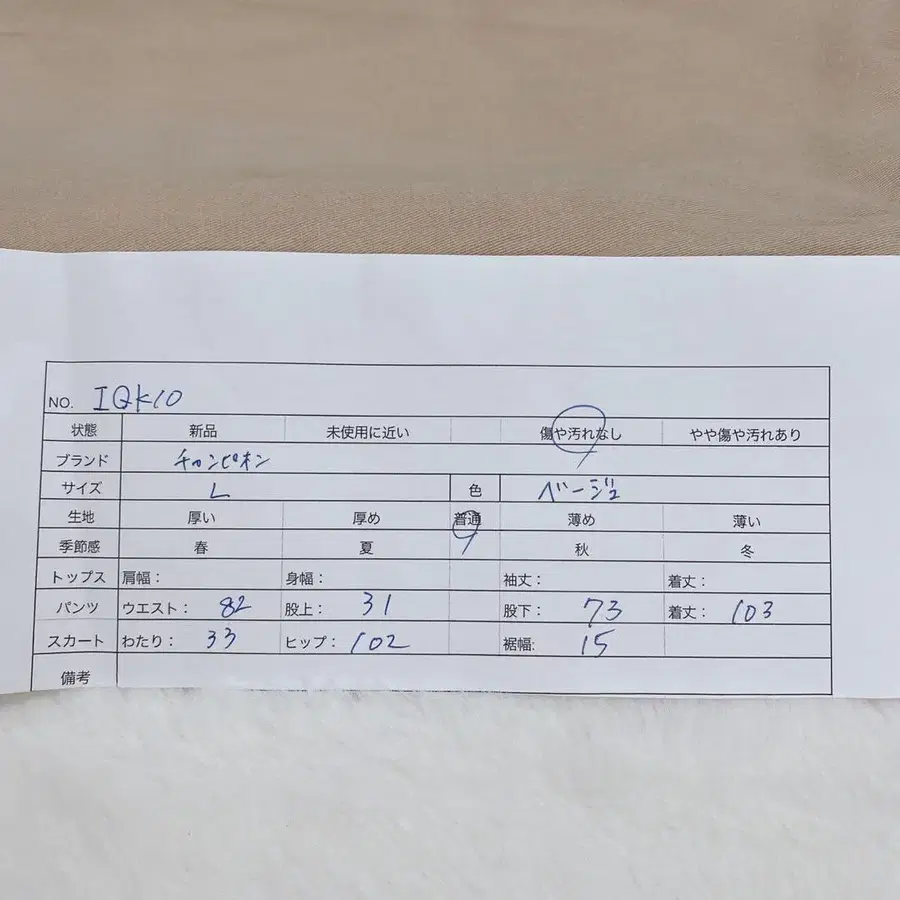 NO. IQK10
状態 新品 未使用に近い 傷や汚れなし やや傷や汚れあり
ブランド チャンピオン
サイズ L 色 ベージュ
生地 厚い 厚め 普通 薄め 薄い
季節感 春 夏 秋 冬
トップス 肩幅： 身幅： 袖丈： 着丈：
パンツ ウエスト： 82 股上： 31 股下： 73 着丈： 103
スカート わたり： 33 ヒップ： 102 裾幅: 15
備考